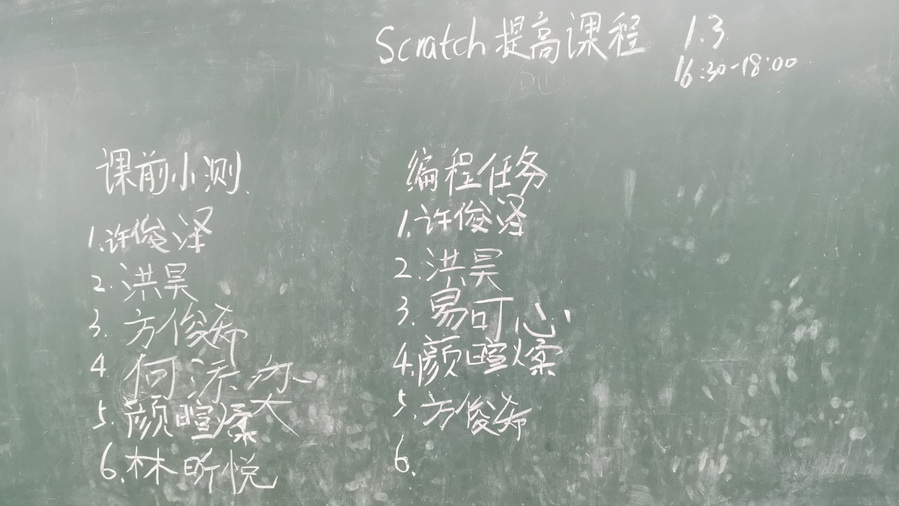 Scratch提高课程 1.3
16:30-18:00
课前小测
1.许俊泽
2.洪昊
3.方俊希
4 何沃
5.颜暄
6.林昕悦
编程任务
1.许俊泽
2.洪昊
3.易可心
4.颜暄
5.方俊希
6.